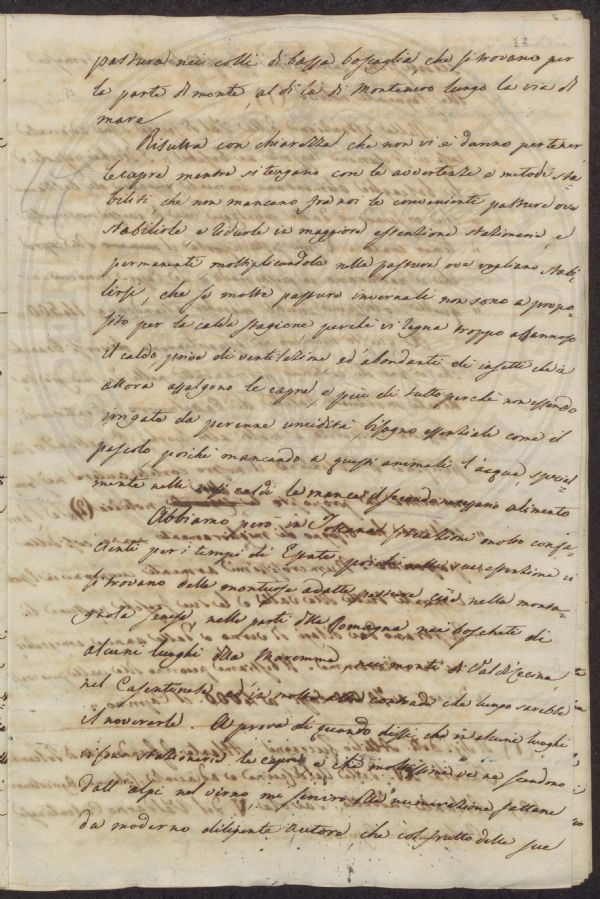 18
pastura nei colli di bassa boscaglia, che si trovano per
la parte di monte, al di là di Montenero lungo la via di
mare.
Risulta con chiarezza che non vi è danno per tener
le capre mentre si tengano con le avvertenze e metodi sta-
biliti che non mancano fra noi le conveniente pasture ove
stabilirle, e ridurle in maggiore estenzione stazionarie, e
permanenti moltiplicandole nelle pasture ove vogliano stabi-
lirsi, che se molte pasture invernali non sono a propo-
sito per la calda stagione, perché vi regna troppo affannoso
il caldo, prive di ventilazione, ed abondante di insetti che in
allora assalgono le capre, e più di tutto perché non essendo
irrigate da perenne umidità, bisogno essenziale come il
pascolo, poiché mancando a questi animali l'acqua, special-
mente nelle caldi le manca il secondo necessario alimento
Abbiamo però in Toscana situazione molto confa-
cienti per i tempi di Estate, poiché estenzione vi
si trovano delle montuose adatte pasture cioè nella monta-
gnola Senese, nelle parti della Romagna nei boscheti di
alcuni luoghi della Maremma nei monti di Val di Cecina,
nel Casentinese, ed in molte altre contrade che lungo sarebbe
il noverarle. A prova di quando dissi, che in alcuni luoghi
vi sono stazionarie le capre e che moltissime ve ne scendono
dall'alpi nel verno me servirò della numerazione fattane
da moderno diligente autore, che col frutto delle sue